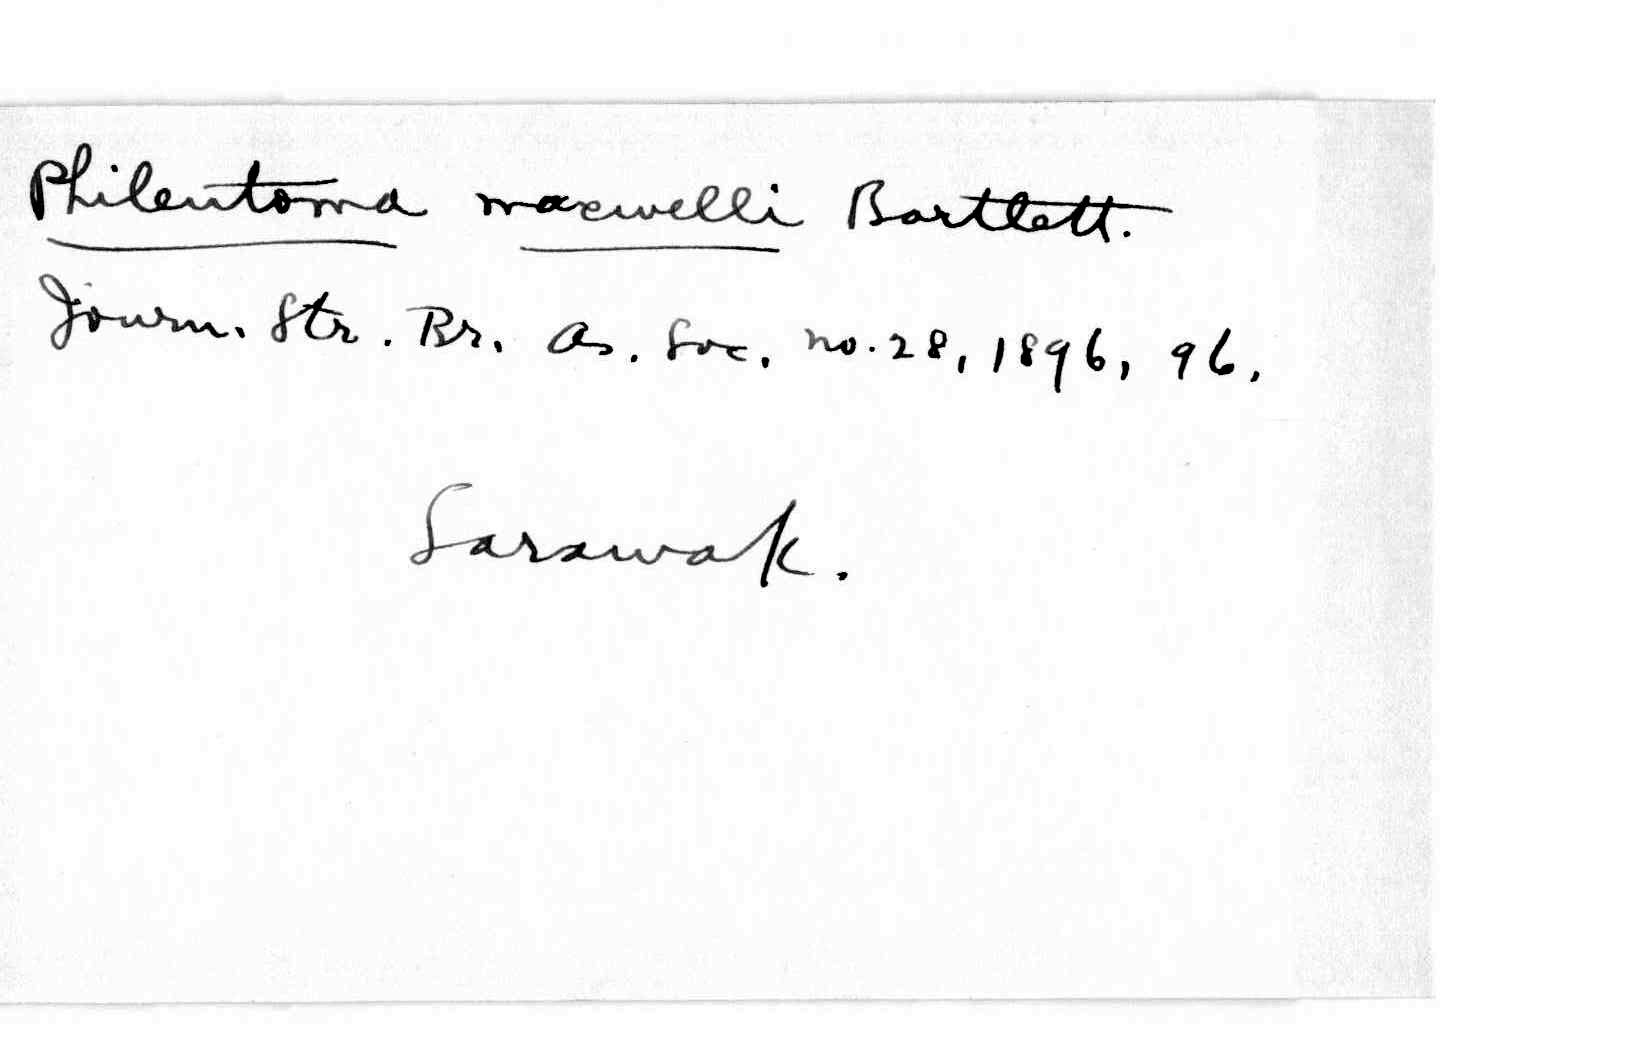 Philentoma maxwelli Bartlett.
Journ. Str. Br. As. Soc. no. 28, 1896, 96.
Sarawak.